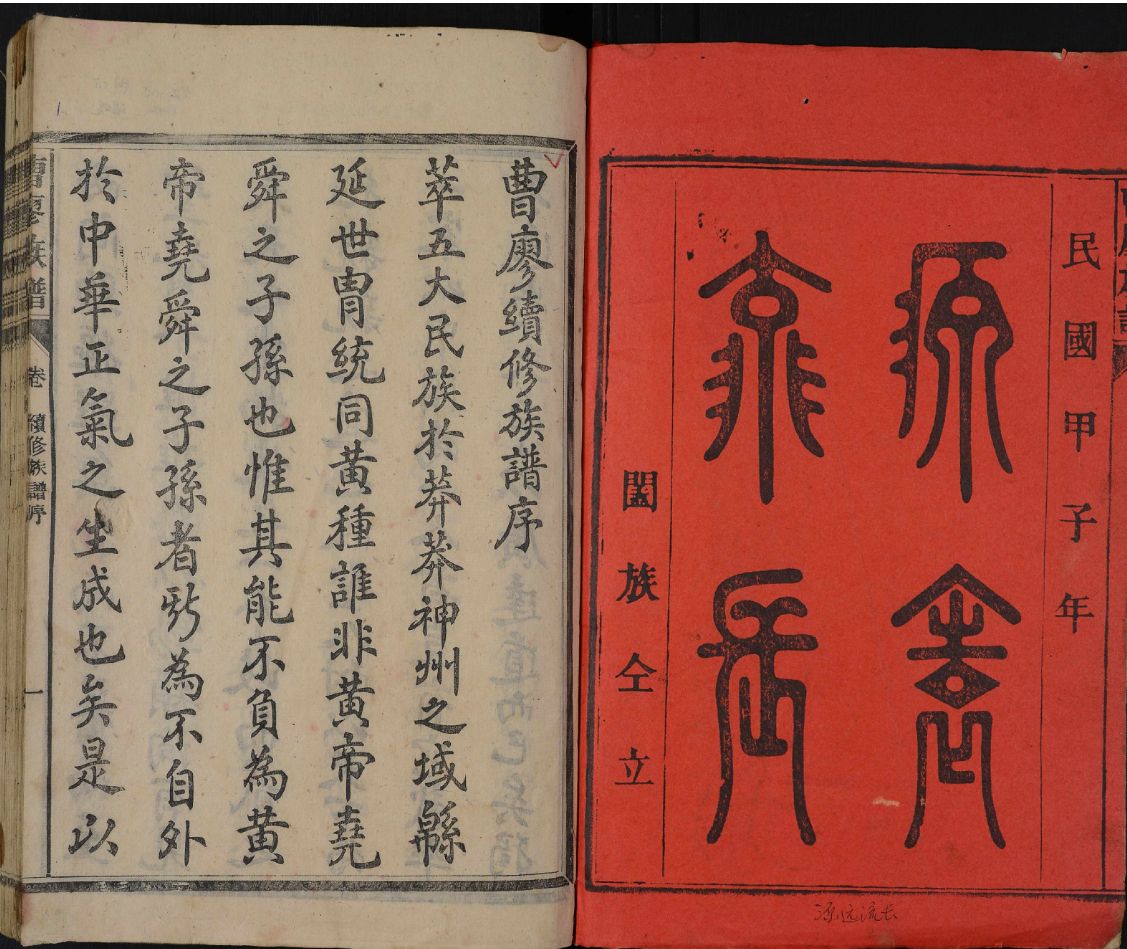 民國甲子年
源遠
流長
闔族仝立
源远流长
曹廖續修族譜序
萃五大民族於莽莽神州之域緜
延世冑統同黃種誰非黃帝堯
舜之子孫也惟其能不負為黃
帝堯舜之子孫者斯為不自外
於中華正氣之生成也矣是以
曹廖族譜
卷 續修族譜序 一